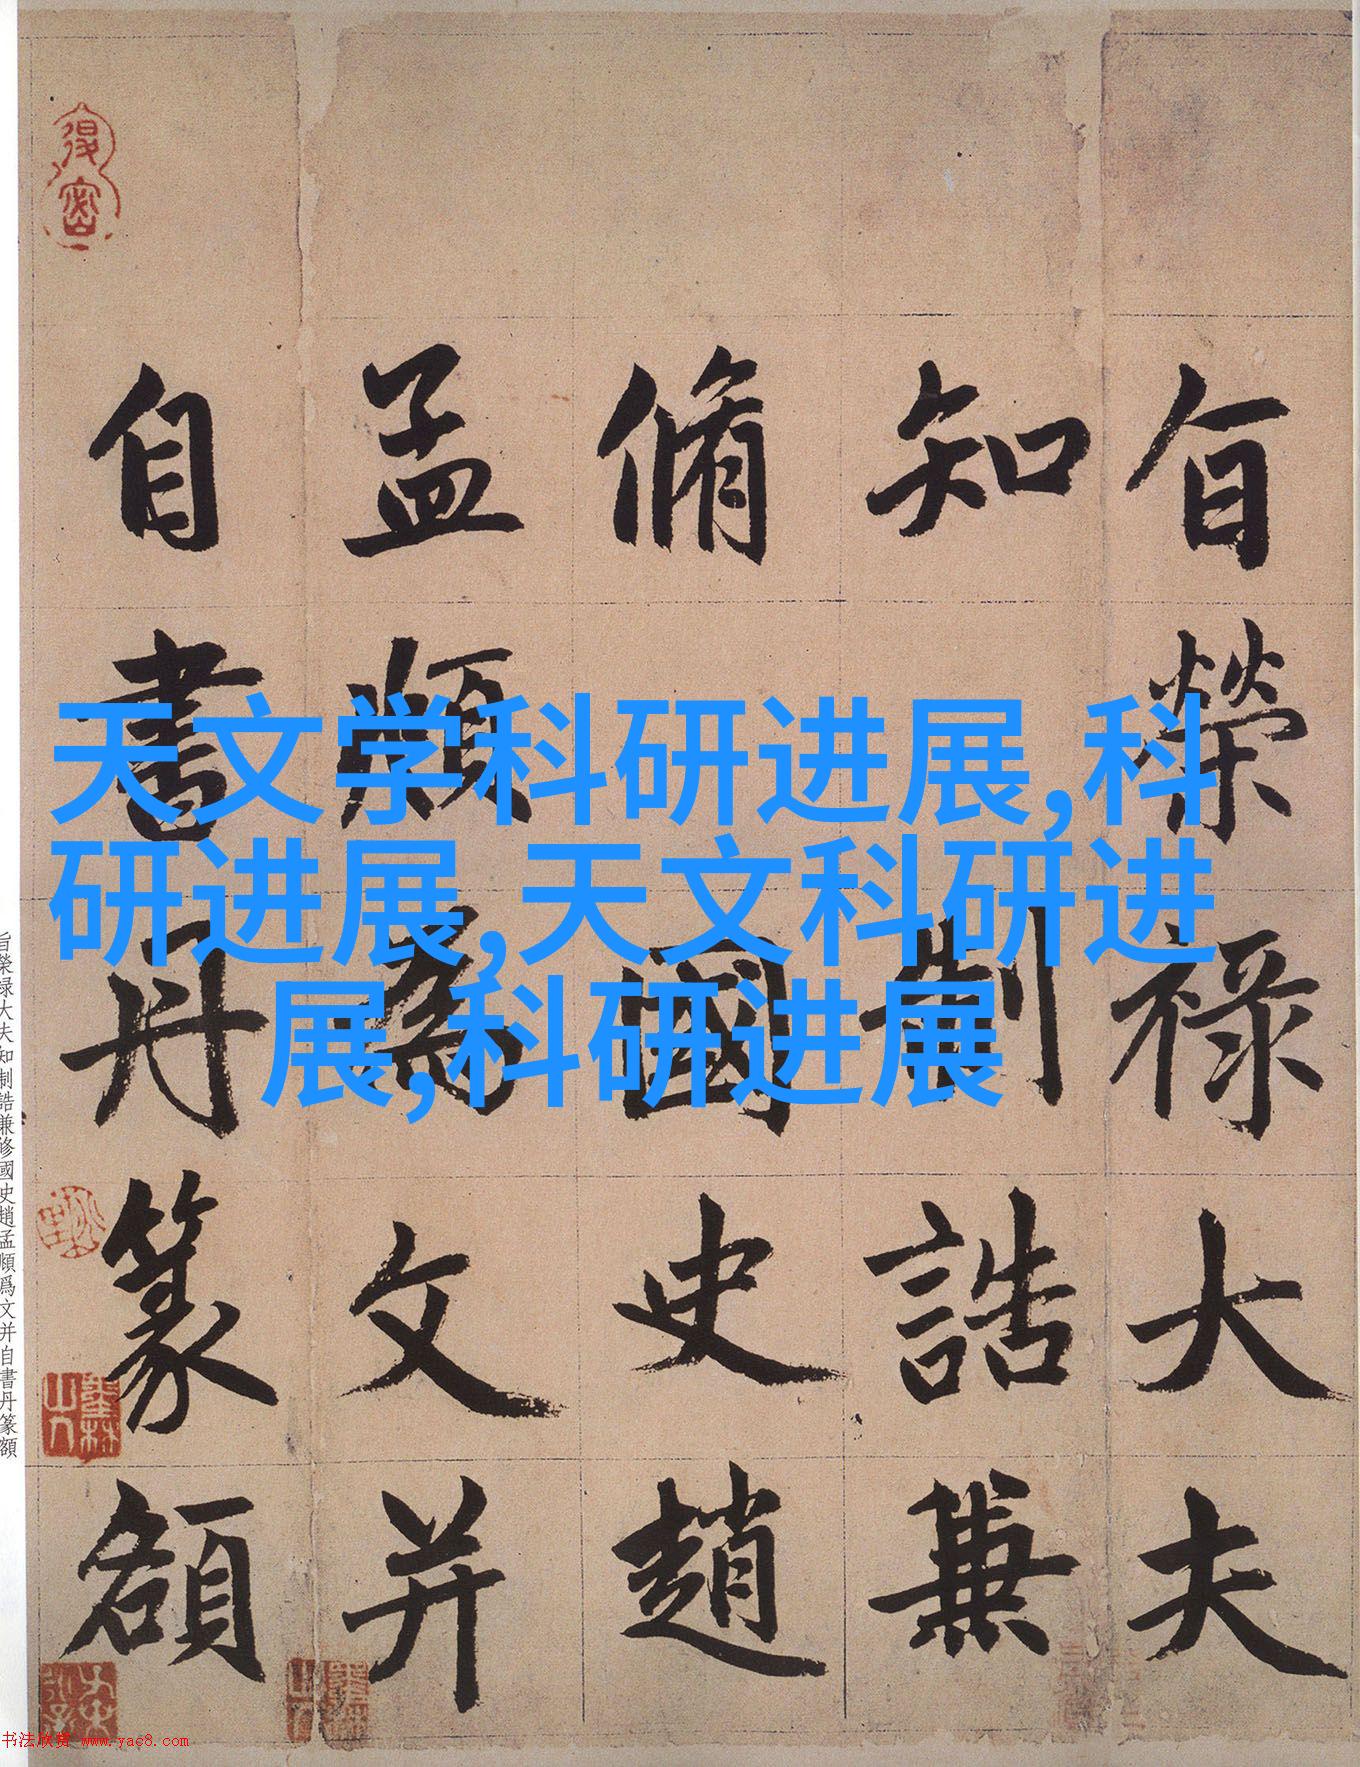 天文学科研进展,科
研进展,天文科研进
展,科研进展
旨榮祿大夫
知制誥兼
脩國史趙
孟頫為文并
自書丹篆額
旨榮禄大夫知制誥兼修國史趙孟頫爲文并自書丹篆額
书法欣赏 www.yac8.com